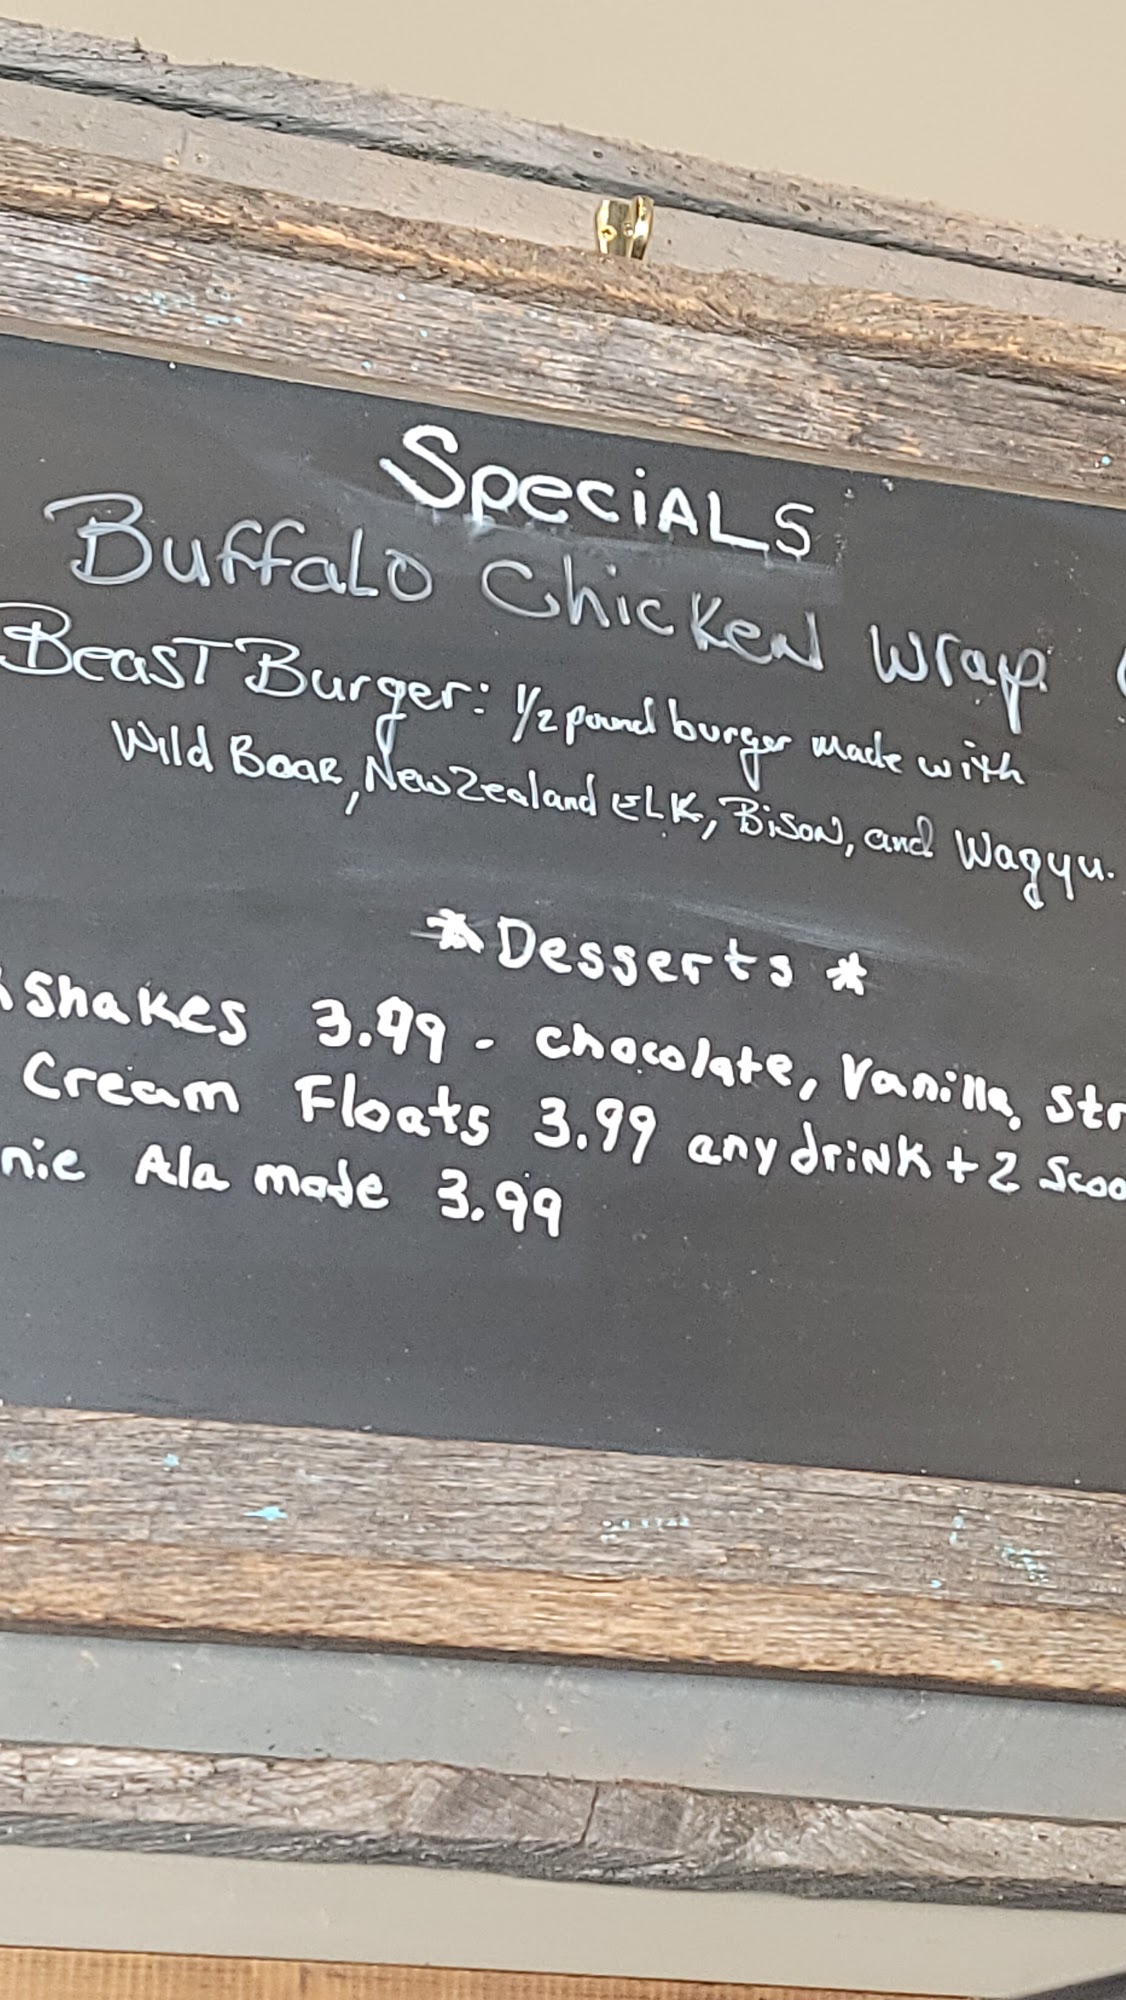 SpeciALS
Buffalo Chicken Wrap
Beast Burger: 1/2 pound burger made with
Wild Boar, New Zealand ELK, Bison, and Wagyu.
*Desserts*
shakes 3.99 - chocolate, Vanilla, str
Cream Floats 3.99 any drink + 2 scoo
nie Ala mode 3.99